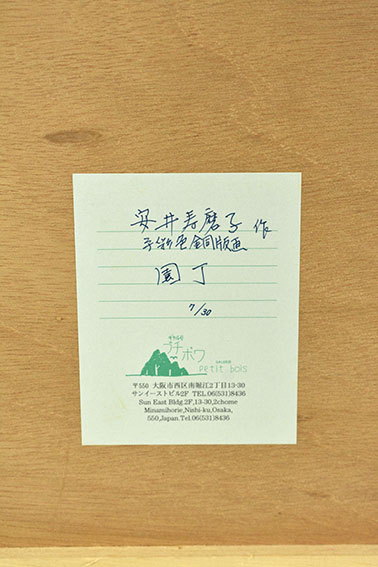 安井寿磨子 作
手彩色銅版画
園丁
7/30
ギャラリー
プチボワ
GALERIE
Petit bois
〒550 大阪市西区南堀江2丁目13-30
サンイーストビル2F TEL.06(531)8436
Sun East Bldg.2F,13-30,2chome
Minamihorie,Nishi-ku,Osaka,
550,Japan.Tel.06(531)8436